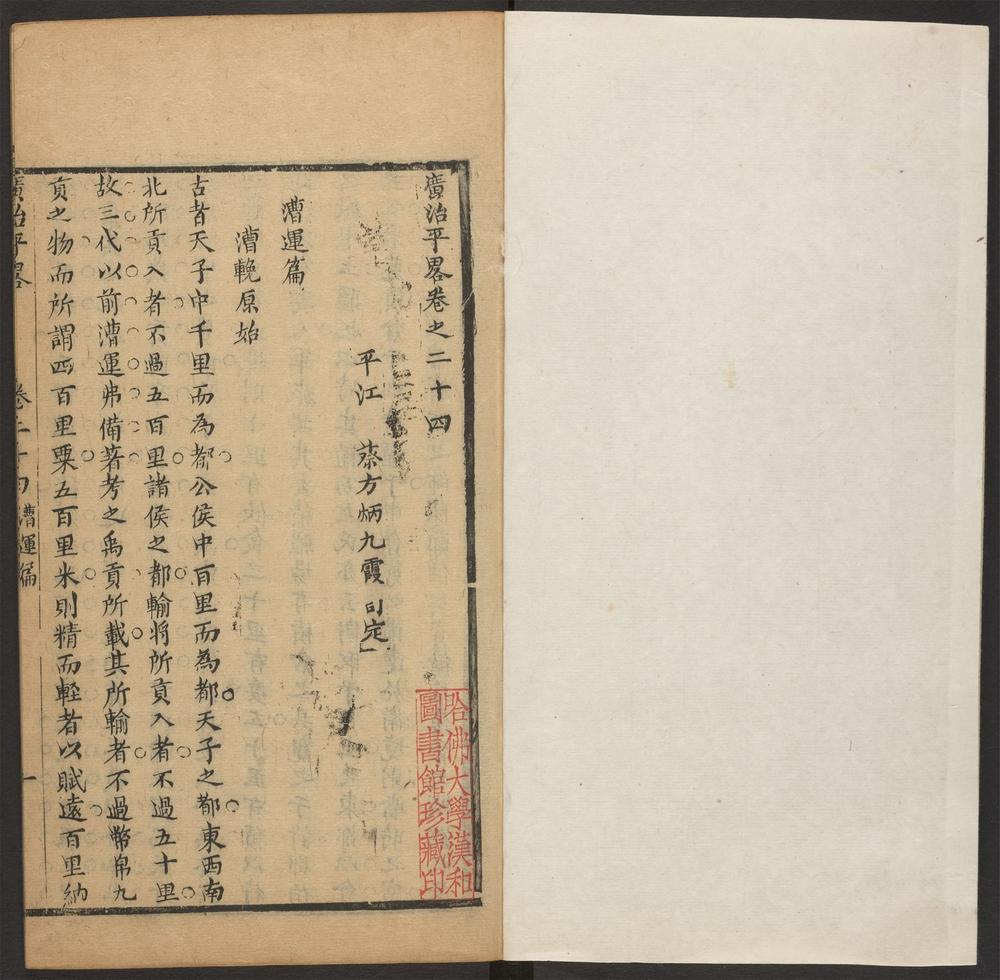 廣治平畧卷之二十四
平江 蔡方炳九霞 定
漕運篇
漕輓原始
古者天子中千里而為都公侯中百里而為都天子之都東西南
北所貢入者不過五百里諸侯之都輸將所貢入者不過五十里
故三代以前漕運弗備著考之禹貢所載其所輸者不過幣帛九
貢之物而所謂四百里粟五百里米則精而輕者以賦遠百里納
廣治平畧 卷二十四漕運篇 一
哈佛大學漢和
圖書館珍藏印